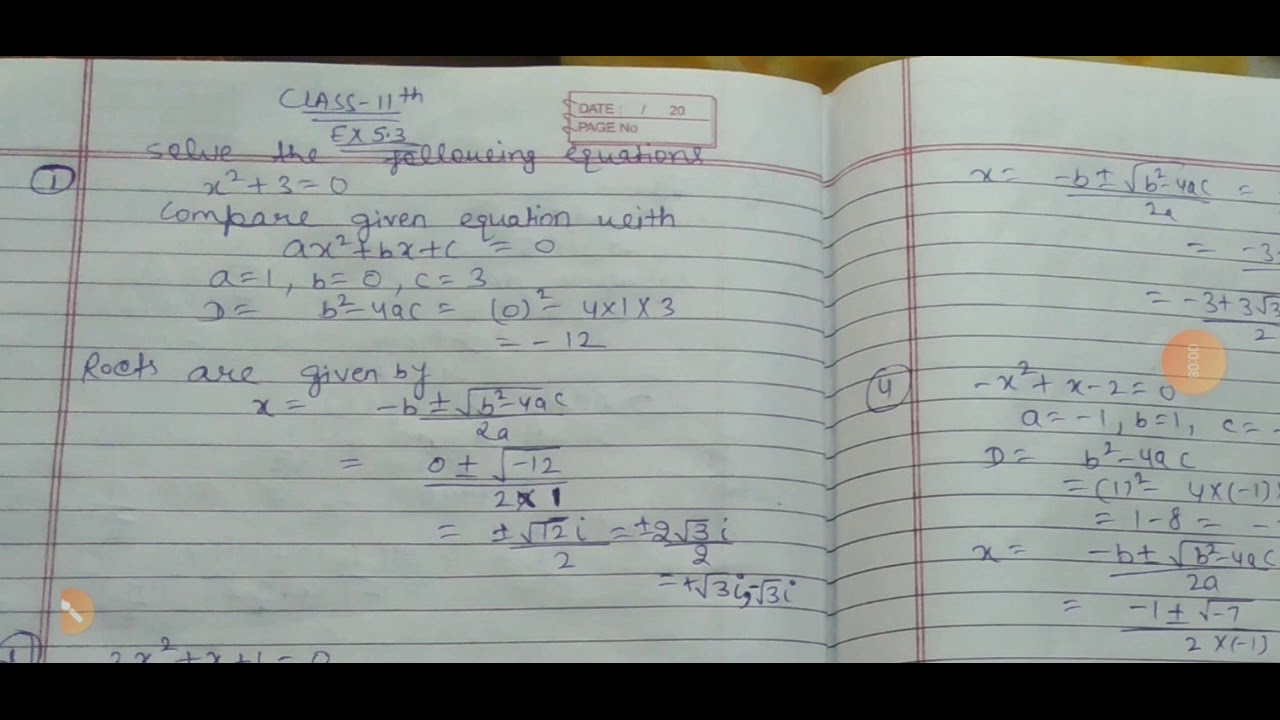 CLASS-11th
EX 5.3
DATE : / 20
PAGE No
solve the following equations
① x² + 3 = 0
Compare given equation with
ax² + bx + c = 0
a = 1, b = 0, c = 3
D = b² - 4ac = (0)² - 4×1×3
= - 12
Roots are given by
x = -b ± √b²-4ac / 2a
= 0 ± √-12 / 2×1
= ± √12 i / 2 = ± 2√3 i / 2
= +√3i, -√3i
2x² + x + 1 = 0
x = -b ± √b²-4ac / 2a =
= -3
= -3 + 3√3 / 2
00:08
④ -x² + x - 2 = 0
a = -1, b = 1, c = -
D = b² - 4ac
= (1)² - 4×(-1)
= 1 - 8 = -
x = -b ± √b²-4ac / 2a
= -1 ± √-7 / 2×(-1)